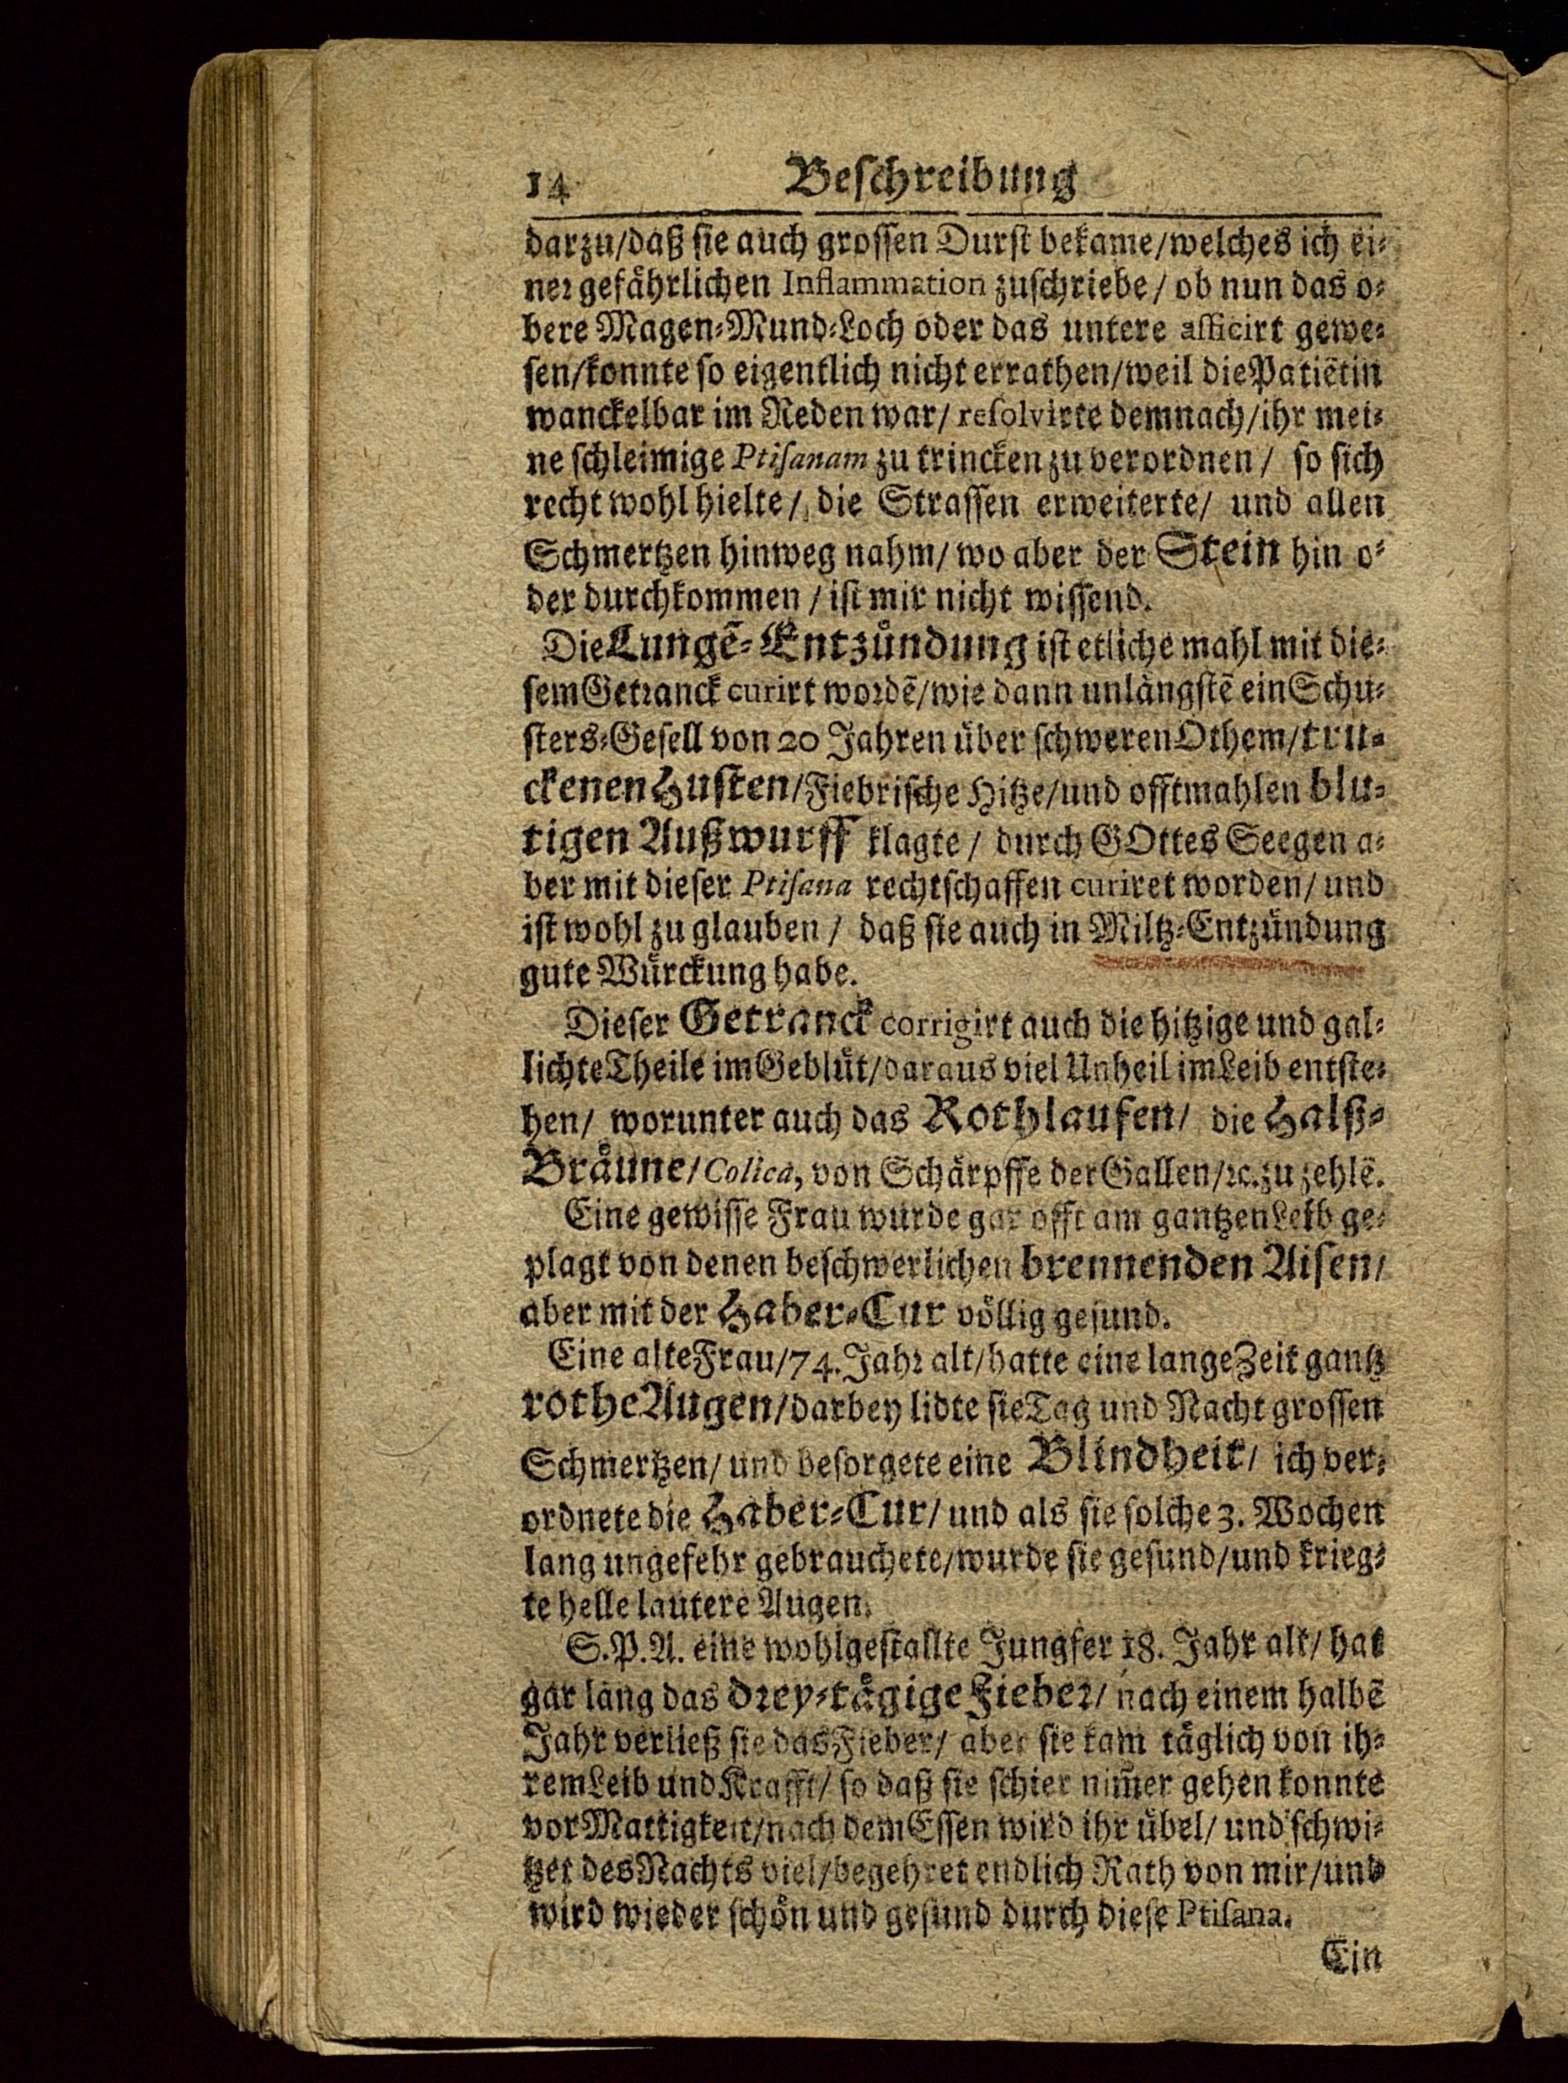 14 Beschreibung
darzu/daß sie auch grossen Durst bekame/welches ich ei⸗
ner gefährlichen Inflammation zuschriebe/ ob nun das o⸗
bere Magen⸗Mund⸗Loch oder das untere afficirt gewe⸗
sen/konnte so eigentlich nicht errathen/weil die Patiẽtin
wanckelbar im Reden war/ resolvirte demnach/ihr mei⸗
ne schleimige Ptisanam zu trincken zu verordnen/ so sich
recht wohl hielte/ die Strassen erweiterte/ und allen
Schmertzen hinweg nahm/ wo aber der Stein hin o⸗
der durchkommen / ist mir nicht wissend.
Die Lungẽ⸗Entzündung ist etliche mahl mit die⸗
sem Getranck curirt wordẽ/wie dann unlängstẽ ein Schu⸗
sters⸗Gesell von 20 Jahren über schweren Othem/tru⸗
ckenen Husten/Fiebrische Hitze/und offtmahlen blu⸗
tigen Außwurff klagte/ durch GOttes Seegen a⸗
ber mit dieser Ptisana rechtschaffen curiret worden/ und
ist wohl zu glauben / daß sie auch in Miltz⸗Entzündung
gute Würckung habe.
Dieser Getranck corrigirt auch die hitzige und gal⸗
lichte Theile im Geblüt/daraus viel Unheil im Leib entste⸗
hen/ worunter auch das Rothlaufen/ die Halß⸗
Bräune/Colica, von Schärpffe der Gallen/ꝛc. zu zehlẽ.
Eine gewisse Frau wurde gar offt am gantzen Leib ge⸗
plagt von denen beschwerlichen brennenden Aisen/
aber mit der Haber⸗Cur völlig gesund.
Eine alte Frau/74. Jahr alt/hatte eine lange Zeit gantz
rothe Augen/darbey lidte sie Tag und Nacht grossen
Schmertzen/ und besorgete eine Blindheit/ ich ver⸗
ordnete die Haber⸗Cur/ und als sie solche 3. Wochen
lang ungefehr gebrauchete/wurde sie gesund/und krieg⸗
te helle lautere Augen.
S.P.A. eine wohlgestallte Jungfer 18. Jahr alt/ hat
gar lang das drey⸗tägige Fieber/ nach einem halbẽ
Jahr verließ sie das Fieber/ aber sie kam täglich von ih⸗
rem Leib und Krafft/ so daß sie schier nim̃er gehen konnte
vor Mattigkeit/nach dem Essen wird ihr übel/ und schwi⸗
tzet des Nachts viel/begehret endlich Rath von mir/und
wird wieder schön und gesund durch diese Ptisana.
Ein